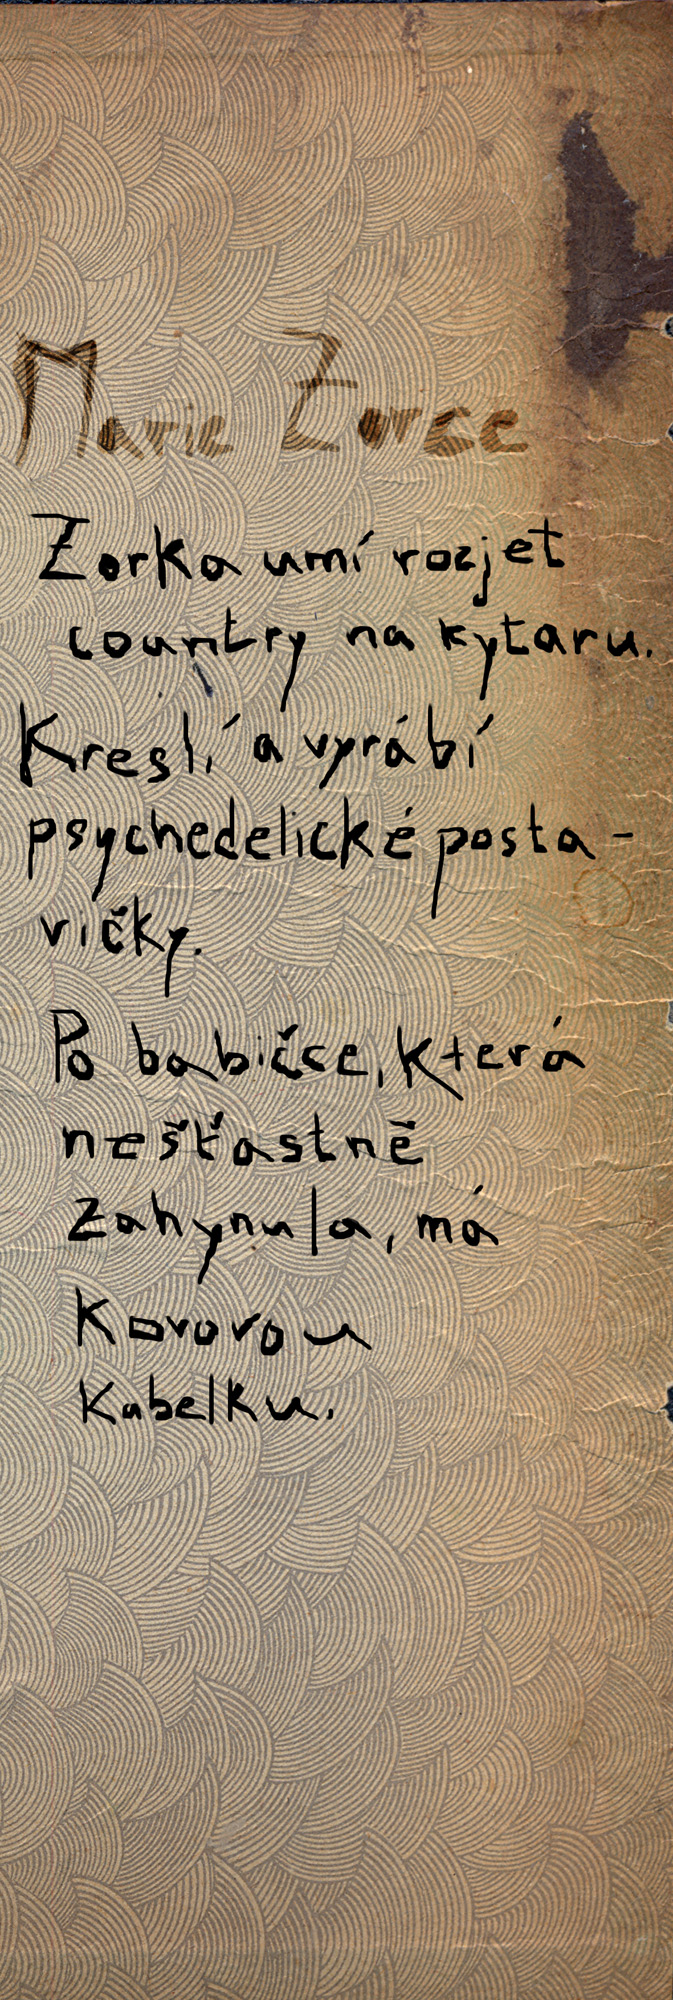 Marie Zorce
Zorka umí rozjet
country na kytaru.
Kreslí a vyrábí
psychedelické posta-
vičky.
Po babičce, která
nešťastně
zahynula, má
Kovovou
Kabelku.